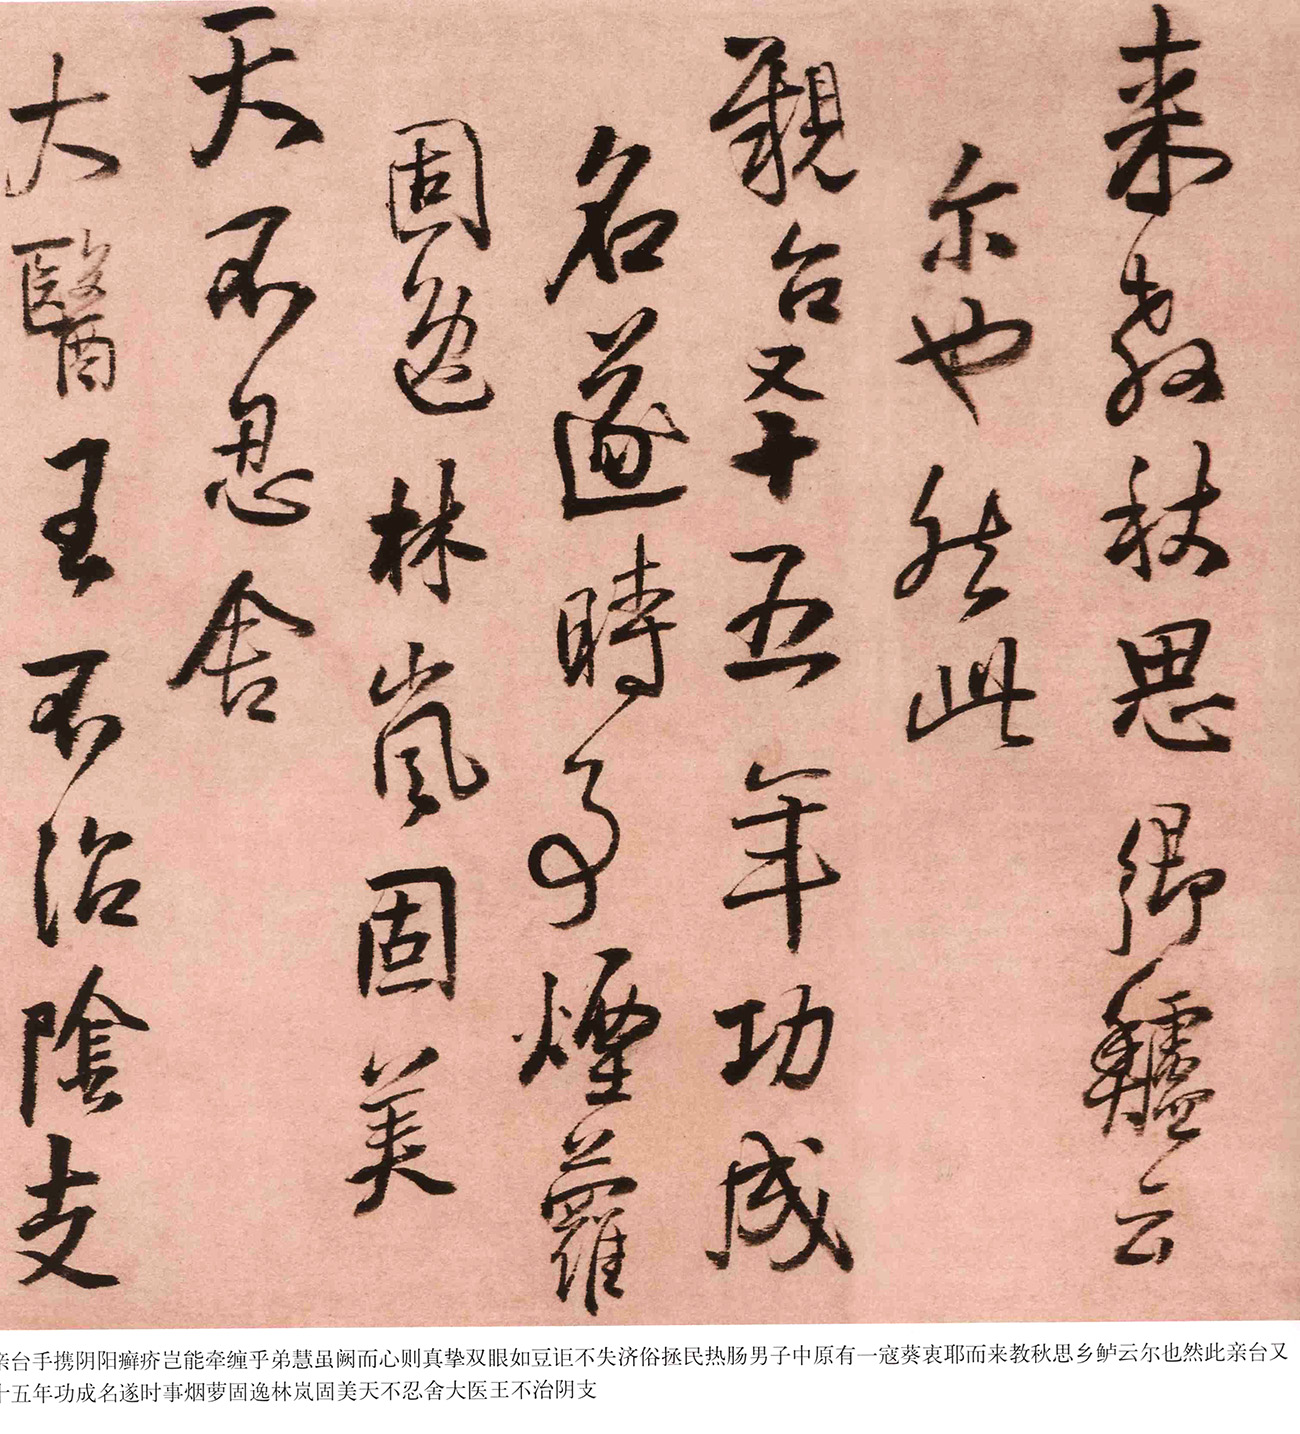 来教秋思鄉鱸云
尔也然此
親台又十五年功成
名遂時事煙蘿
固逸林嵐固美
天不忍舍
大醫王不治陰支
亲台手携阴阳癣疥岂能牵缠乎弟慧虽阙而心则真挚双眼如豆讵不失济俗拯民热肠男子中原有一寇葵衷耶而来教秋思乡鲈云尔也然此亲台又
十五年功成名遂时事烟萝固逸林岚固美天不忍舍大医王不治阴支